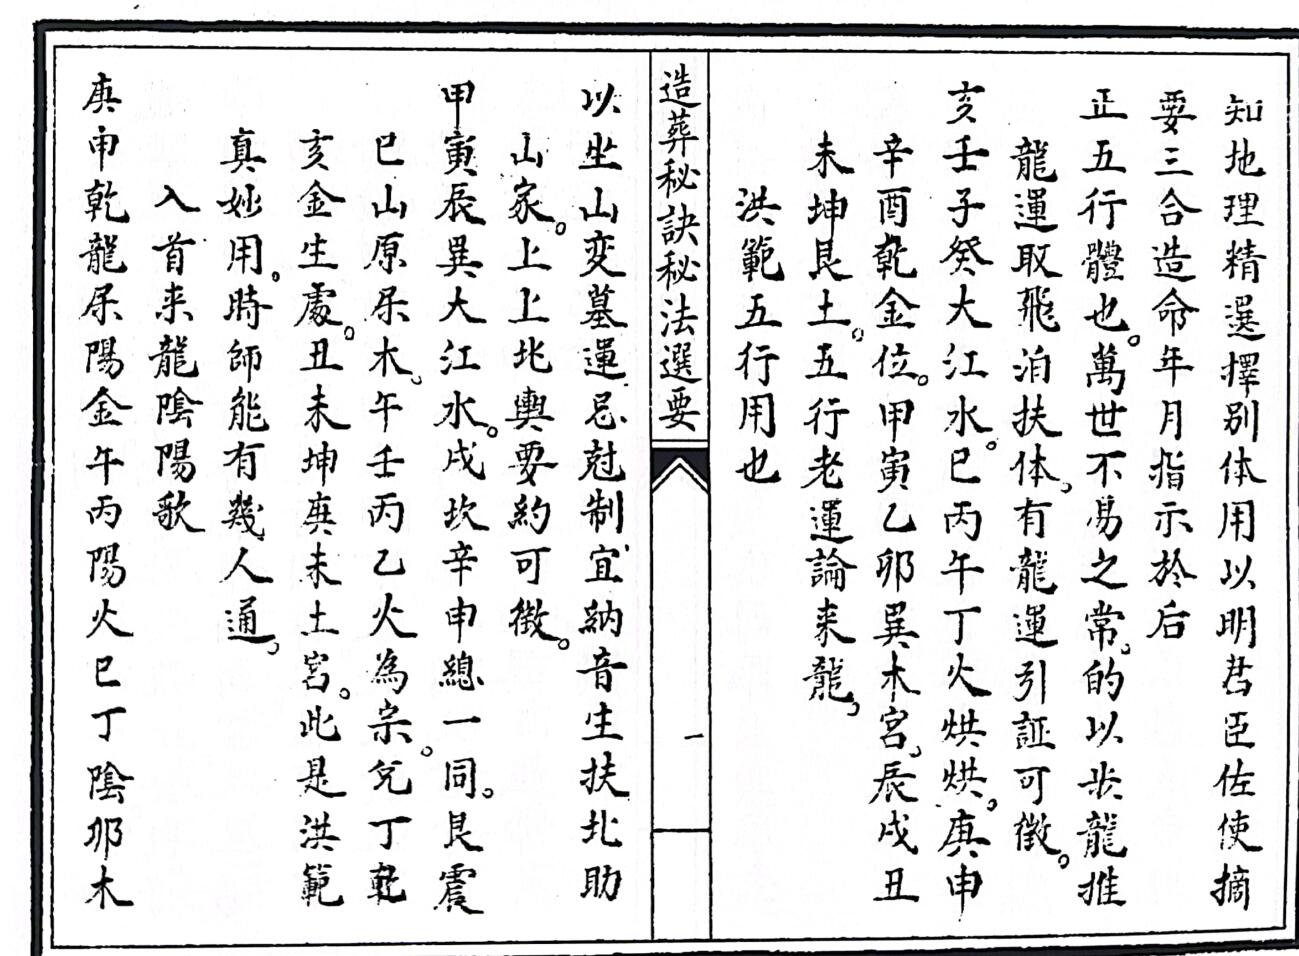 知地理精選擇别体用以明君臣佐使摘
要三合造命年月指示於后
正五行體也。萬世不易之常。的以步龍推
龍運取飛泊扶体。有龍運引証可徵。
亥壬子癸大江水。巳丙午丁火烘烘。庚申
辛酉乾金位。甲寅乙卯巽木宫。辰戌丑
未坤艮土。五行老運論来龍。
洪範五行用也
造葬秘訣秘法選要
一
以坐山変墓運忌尅制宜納音生扶比助
山家。上上北輿要約可徵。
甲寅辰巽大江水。戌坎辛申總一同。艮震
巳山原屬木。午壬丙乙火為宗。兌丁乾
亥金生處。丑未坤庚未土宫。此是洪範
真妙用。時師能有幾人通。
入首来龍陰陽歌
庚申乾龍屬陽金午丙陽火巳丁陰卯木